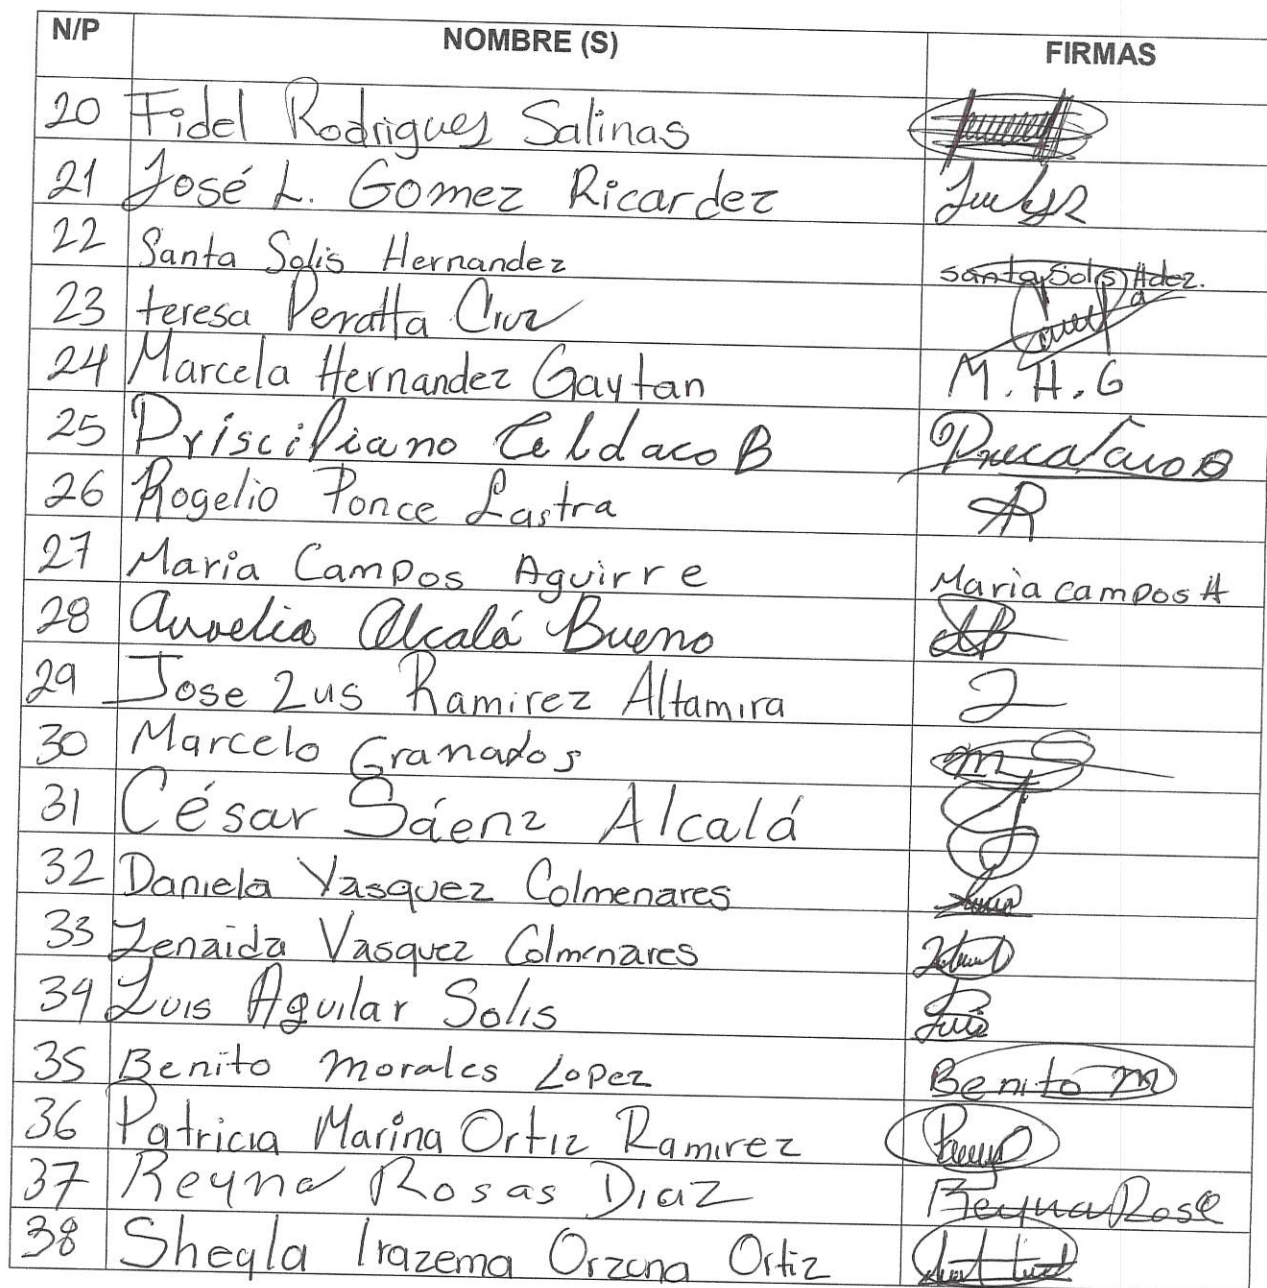 N/P NOMBRE (S) FIRMAS
20 Fidel Rodrigues Salinas
21 José L. Gomez Ricardez
22 Santa Solis Hernandez santa Solis Hdez.
23 teresa Peralta Cruz
24 Marcela Hernandez Gaytan M. H. G
25 Prisciliano Celdaco B
26 Rogelio Ponce Lastra
27 Maria Campos Aguirre Maria campos A
28 Aurelia Alcalá Bueno
29 Jose Lus Ramirez Altamira
30 Marcelo Granados
31 César Sáenz Alcalá
32 Daniela Vasquez Colmenares
33 Zenaida Vasquez Colmenares
34 Luis Aguilar Solis Luis
35 Benito Morales Lopez Benito M
36 Patricia Marina Ortiz Ramirez
37 Reyna Rosas Diaz Reyna Rosa
38 Sheyla Irazema Orzona Ortiz